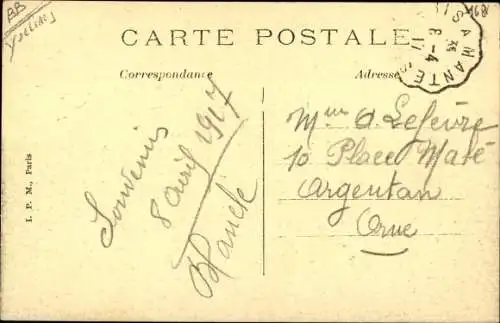 BB
YVELINES
CARTE POSTALE
Correspondance
Adresse
MANTE
8-4
Souvenir
8 avril 1917
Blanche
Mme A. Lefèvre
10 Place Mahé
Argentan
Orne
I. P. M., Paris